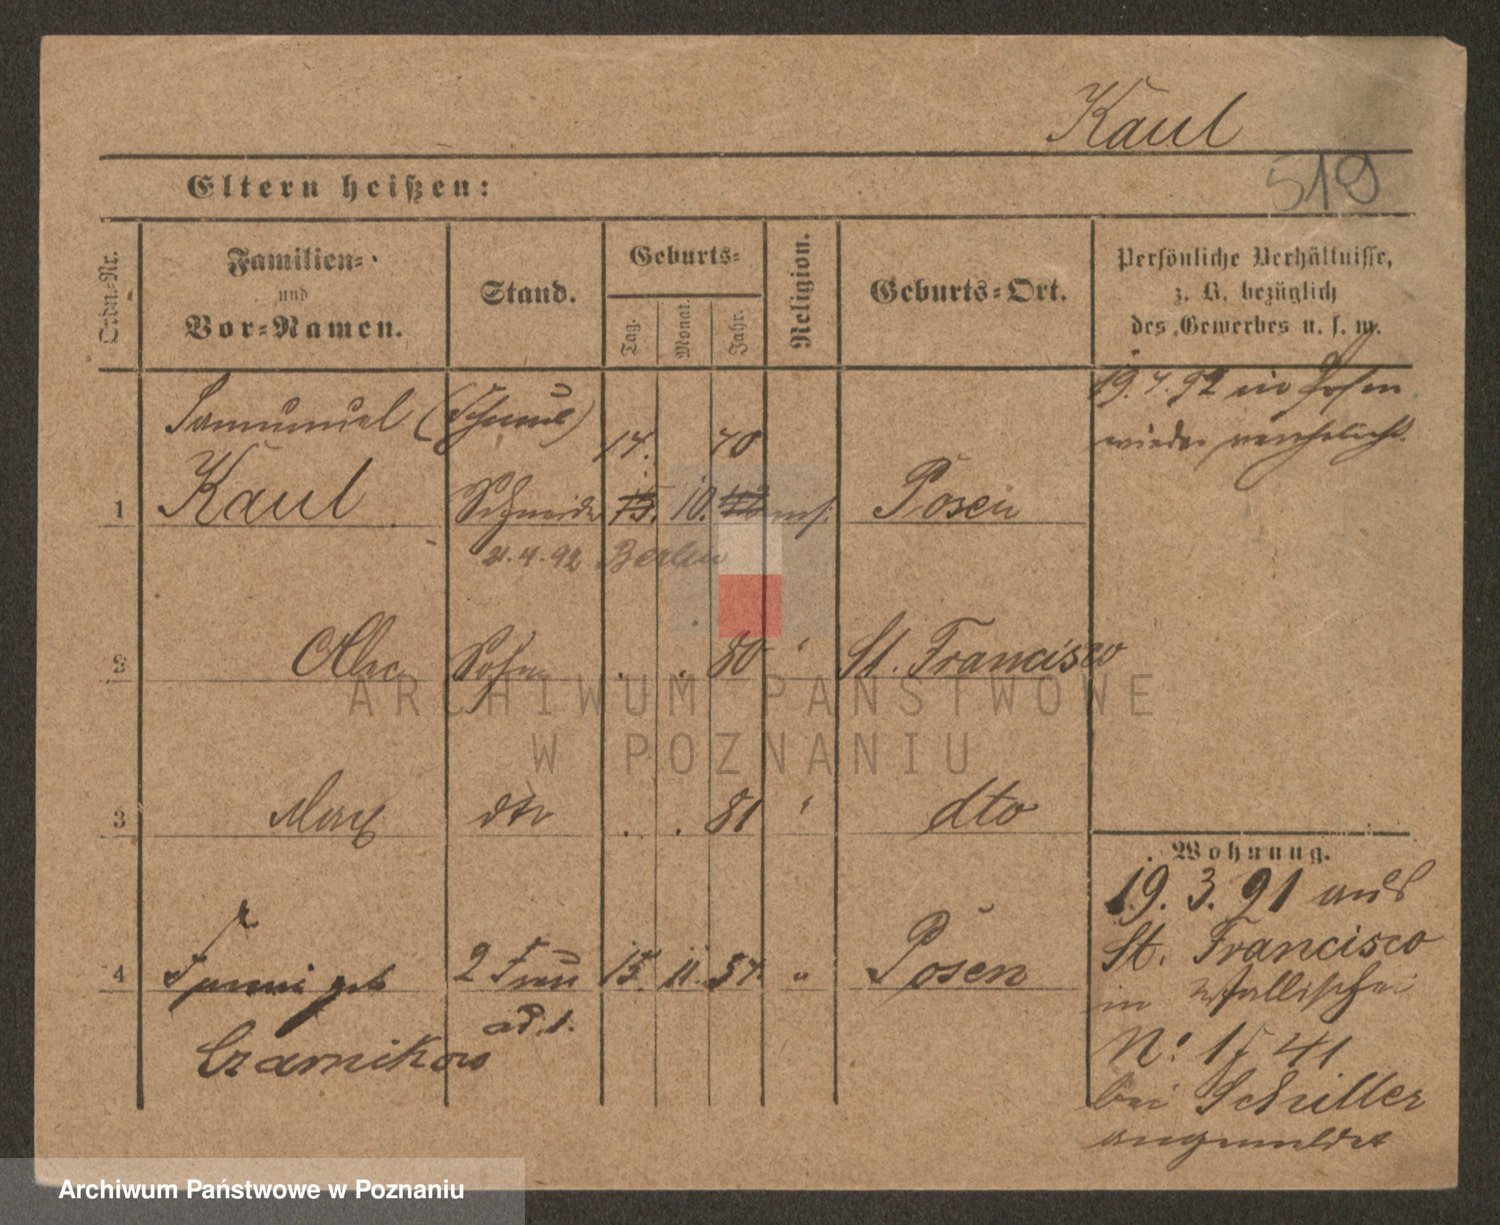 Kaul
519
Eltern heißen:
Ordn.-Nr.
Familien-
und
Vor-Namen.
Stand.
Geburts-
Tag.
Monat.
Jahr.
Religion.
Geburts-Ort.
Persönliche Verhältnisse,
z. B. bezüglich
des Gewerbes u. s. w.
Samumuel (Schmul)
17. 70
19. 4. 92 in Posen
wieder verehelicht.
1 Kaul Schneider 15. 10. mos. Posen
21. 4. 92 Berlin
2 Alec Sohn . . 80 " St. Francisco
3 Max dto . . 81 " dto
4 Fanni geb 2 Frau 15. 11. 57. " Posen
ad 1.
Czarnikow
Wohnung.
19. 3. 91 aus
St. Francisco
in Wallischei
No: 41
bei Schiller
angemeldet
ARCHIWUM PAŃSTWOWE
W POZNANIU
Archiwum Państwowe w Poznaniu